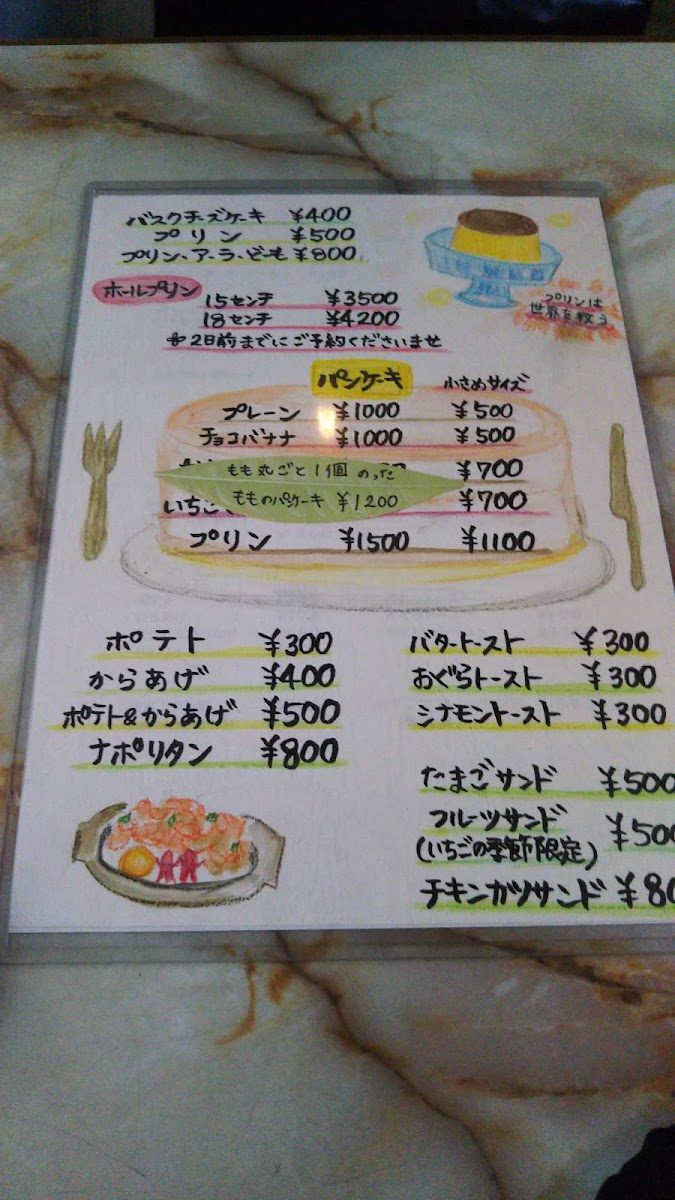 バスクチーズケーキ ¥400
プリン ¥500
プリン、ア、ラ、どーも ¥800
ホールプリン
15センチ ¥3500
18センチ ¥4200
2日前までにご予約くださいませ
プリンは
世界を救う
パンケーキ 小さめサイズ
プレーン ¥1000 ¥500
チョコバナナ ¥1000 ¥500
¥700
もも丸ごと1個 のった
もものパンケーキ ¥1200
いちご ¥700
プリン ¥1500 ¥1100
ポテト ¥300
からあげ ¥400
ポテト&からあげ ¥500
ナポリタン ¥800
バタートースト ¥300
おぐらトースト ¥300
シナモントースト ¥300
たまごサンド ¥500
フルーツサンド ¥500
(いちごの季節限定)
チキンカツサンド